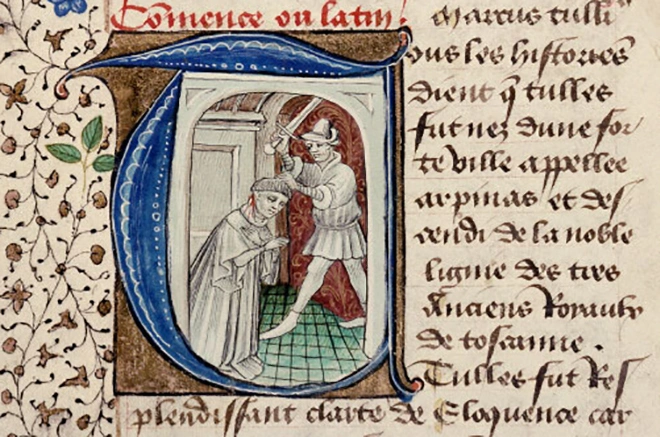 Comence ou latin. Marcus tulli⁹
Tous les histores
dient q̃ tulles
fut nez dune for
te ville appellee
arpinas et des
cendi de la noble
lignie des tres
Anciens Royaulx
de toscanne .
Tulles fut Res
plendissant clarte de Eloquence car